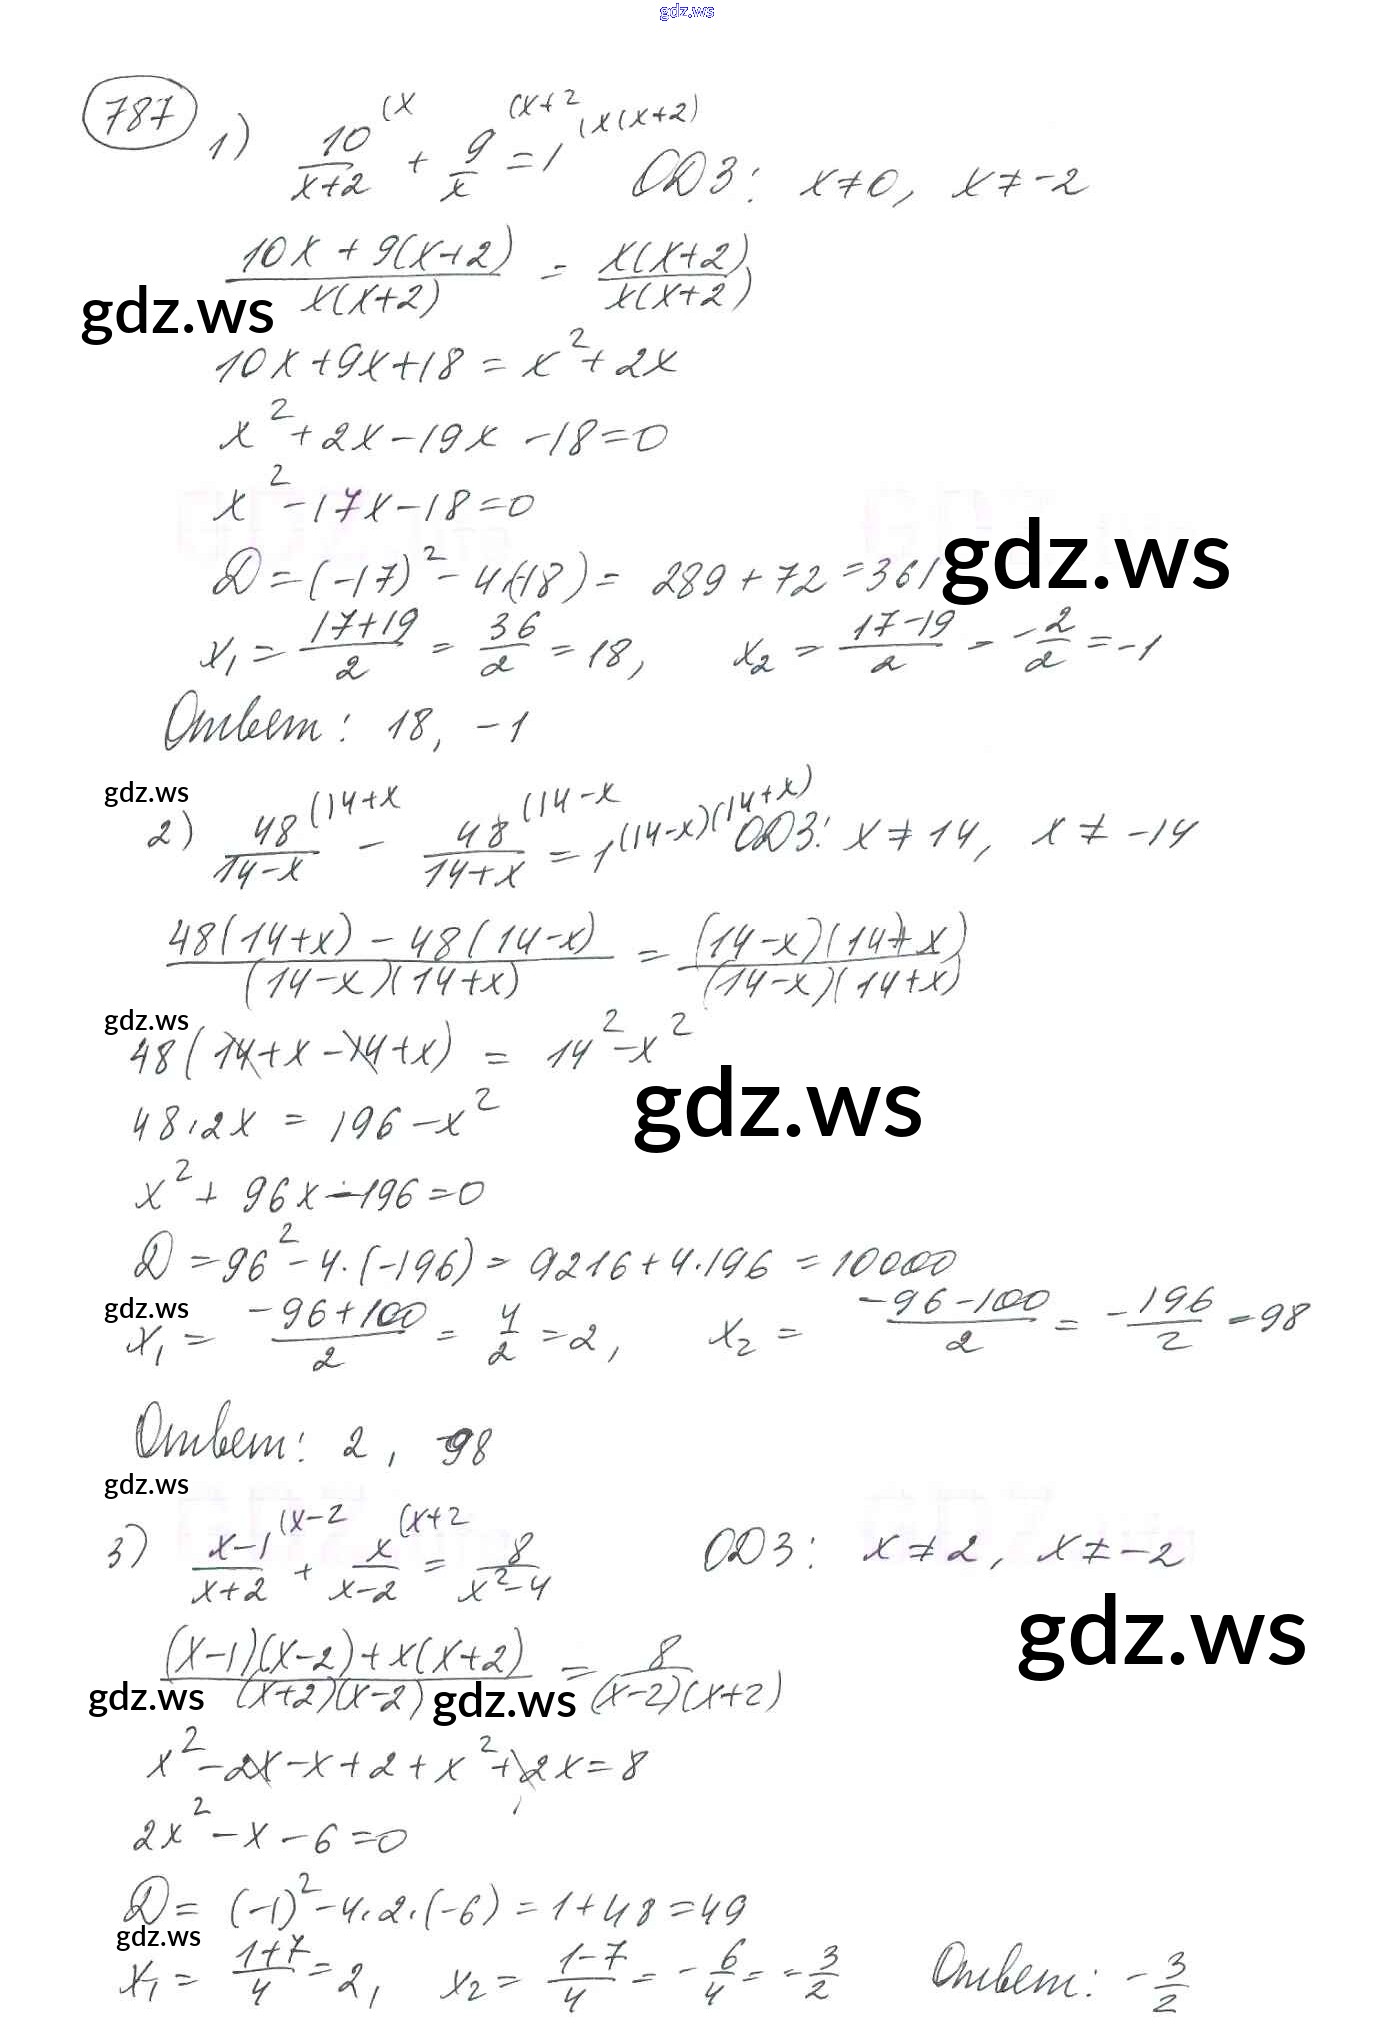 gdz.ws
787
1) 10/(x+2) (x + 9/x (x+2 = 1 (x(x+2) ОДЗ: x≠0, x≠-2
(10x + 9(x+2))/(x(x+2)) = (x(x+2))/(x(x+2))
gdz.ws
10x+9x+18 = x²+2x
x²+2x-19x-18=0
x²-17x-18=0
D=(-17)²-4·(-18)= 289+72=361
gdz.ws
x₁ = (17+19)/2 = 36/2 = 18, x₂ = (17-19)/2 = -2/2 = -1
Ответ: 18, -1
gdz.ws
2) 48/(14-x) (14+x - 48/(14+x) (14-x = 1 (14-x)(14+x) ОДЗ: x≠14, x≠-14
(48(14+x) - 48(14-x))/((14-x)(14+x)) = ((14-x)(14+x))/((14-x)(14+x))
gdz.ws
48(14+x-14+x) = 14²-x²
gdz.ws
48·2x = 196-x²
x²+96x-196=0
D=96²-4·(-196)= 9216+4·196=10000
gdz.ws
x₁ = (-96+100)/2 = 4/2 = 2, x₂ = (-96-100)/2 = -196/2 = -98
Ответ: 2, -98
gdz.ws
3) (x-1)/(x+2) (x-2 + x/(x-2) (x+2 = 8/(x²-4) ОДЗ: x≠2, x≠-2
gdz.ws
((x-1)(x-2)+x(x+2))/((x+2)(x-2)) = 8/((x-2)(x+2))
gdz.ws gdz.ws
x²-2x-x+2+x²+2x=8
2x²-x-6=0
D= (-1)²-4·2·(-6)=1+48=49
gdz.ws
x₁ = (1+7)/4 = 2, x₂ = (1-7)/4 = -6/4 = -3/2 Ответ: -3/2